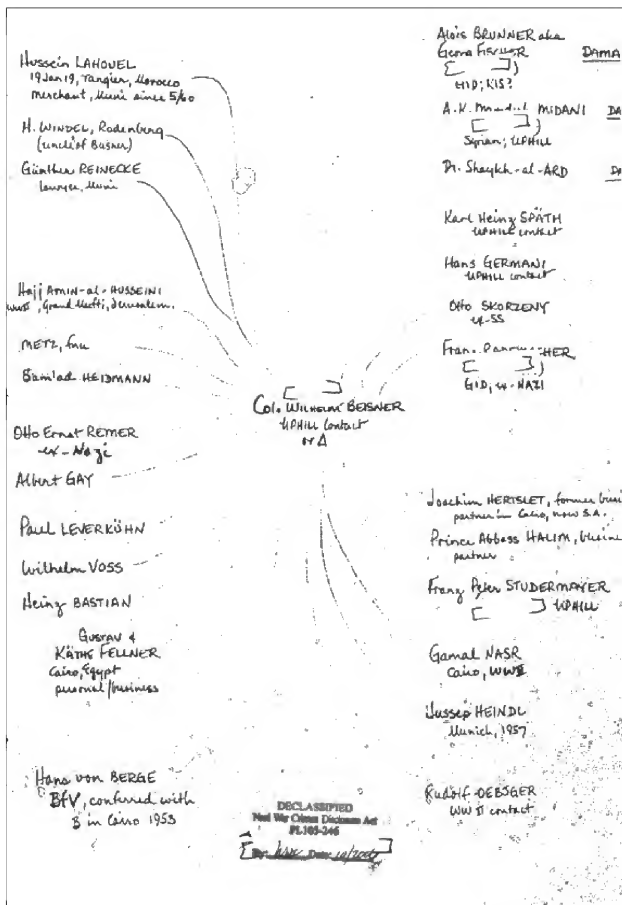 Hussein LAHOUEL
19 Jan 19, Tangier, Morocco
merchant, Muni since 5/60
H. WINDEL, Rodenberg
(uncle of Beisner)
Günther REINECKE
lawyer, Muni
Hajj AMIN-al-HUSSEINI
WWII, Grand Mufti, Jerusalem.
METZ, fnu
HEIDMANN
Otto Ernst REMER
ex-Nazi
Albert GAY
Paul LEVERKÜHN
Wilhelm VOSS
Heinz BASTIAN
GUSTAV &
KÄTHE FELLNER
Cairo, Egypt
personal/business
Hans von BERGE
BfV, conferred with
B in Cairo 1953
[ ]
Col. WILHELM BEISNER
UPHILL contact
Alois BRUNNER aka
Georg FISCHER DAMA
[ ])
GID; RIS?
A.K. MIDANI DA
[ ])
Syrian; UPHILL
Dr. Shaykh-al-ARD DA
Karl Heinz SPÄTH
UPHILL contact
Hans GERMANI
UPHILL contact
Otto SKORZENY
ex-SS
HER
[ ]
GID, ex-NAZI
Joachim HERTSLET, former busi
partner in Cairo, now S.A.
Prince Abbass HALIM, busine
partner
Franz Peter STUDERMAYER
[ ] UPHILL
Gamal NASR
Cairo, WWII
Jussep HEINDL
Munich, 1957
Rudolf OEBSGER
WW II contact
DECLASSIFIED
Nazi War Crimes Disclosure Act
PL105-246
[By: Date: ]